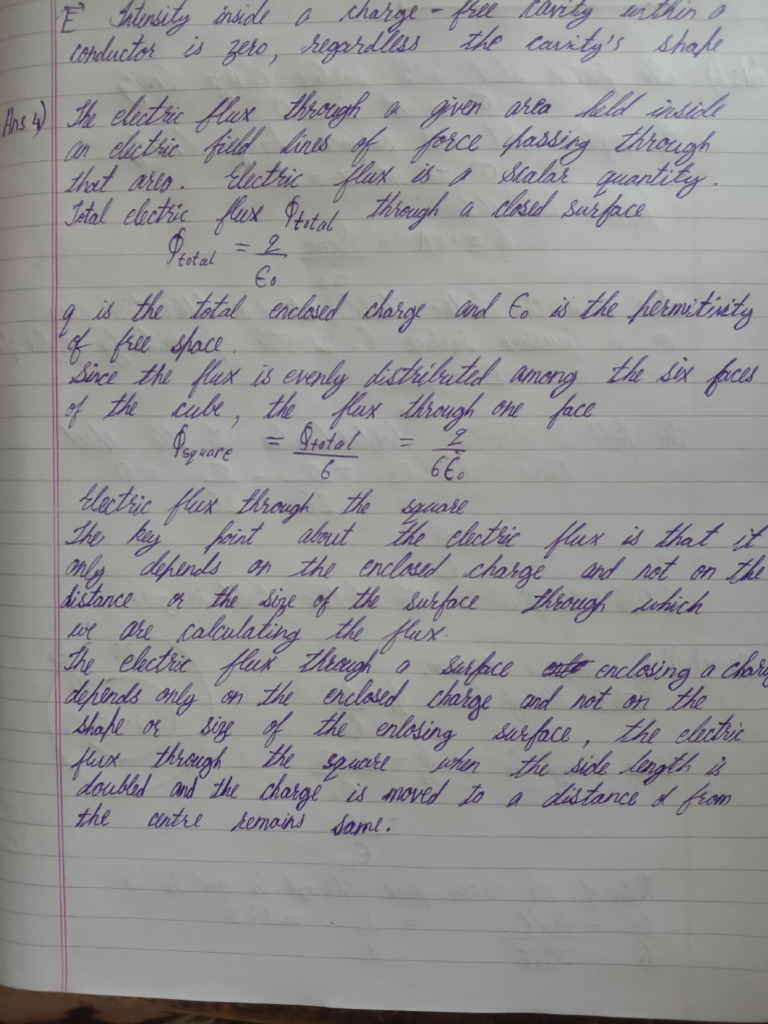 E⃗ Intensity inside a charge - free cavity within a
conductor is zero, regardless the cavity's shape
Ans 4) The electric flux through a given area held inside
an electric field lines of force passing through
that area. Electric flux is a scalar quantity.
Total electric flux ϕtotal through a closed surface
ϕtotal = q/ϵ₀
q is the total enclosed charge and ϵ₀ is the permitivity
of free space.
Since the flux is evenly distributed among the six faces
of the cube, the flux through one face
ϕsquare = ϕtotal/6 = q/6ϵ₀
Electric flux through the square
The key point about the electric flux is that it
only depends on the enclosed charge and not on the
distance or the size of the surface through which
we are calculating the flux.
The electric flux through a surface enclosing a charge
depends only on the enclosed charge and not on the
shape or size of the enlosing surface, the electric
flux through the square when the side length is
doubled and the charge is moved to a distance d from
the centre remains same.